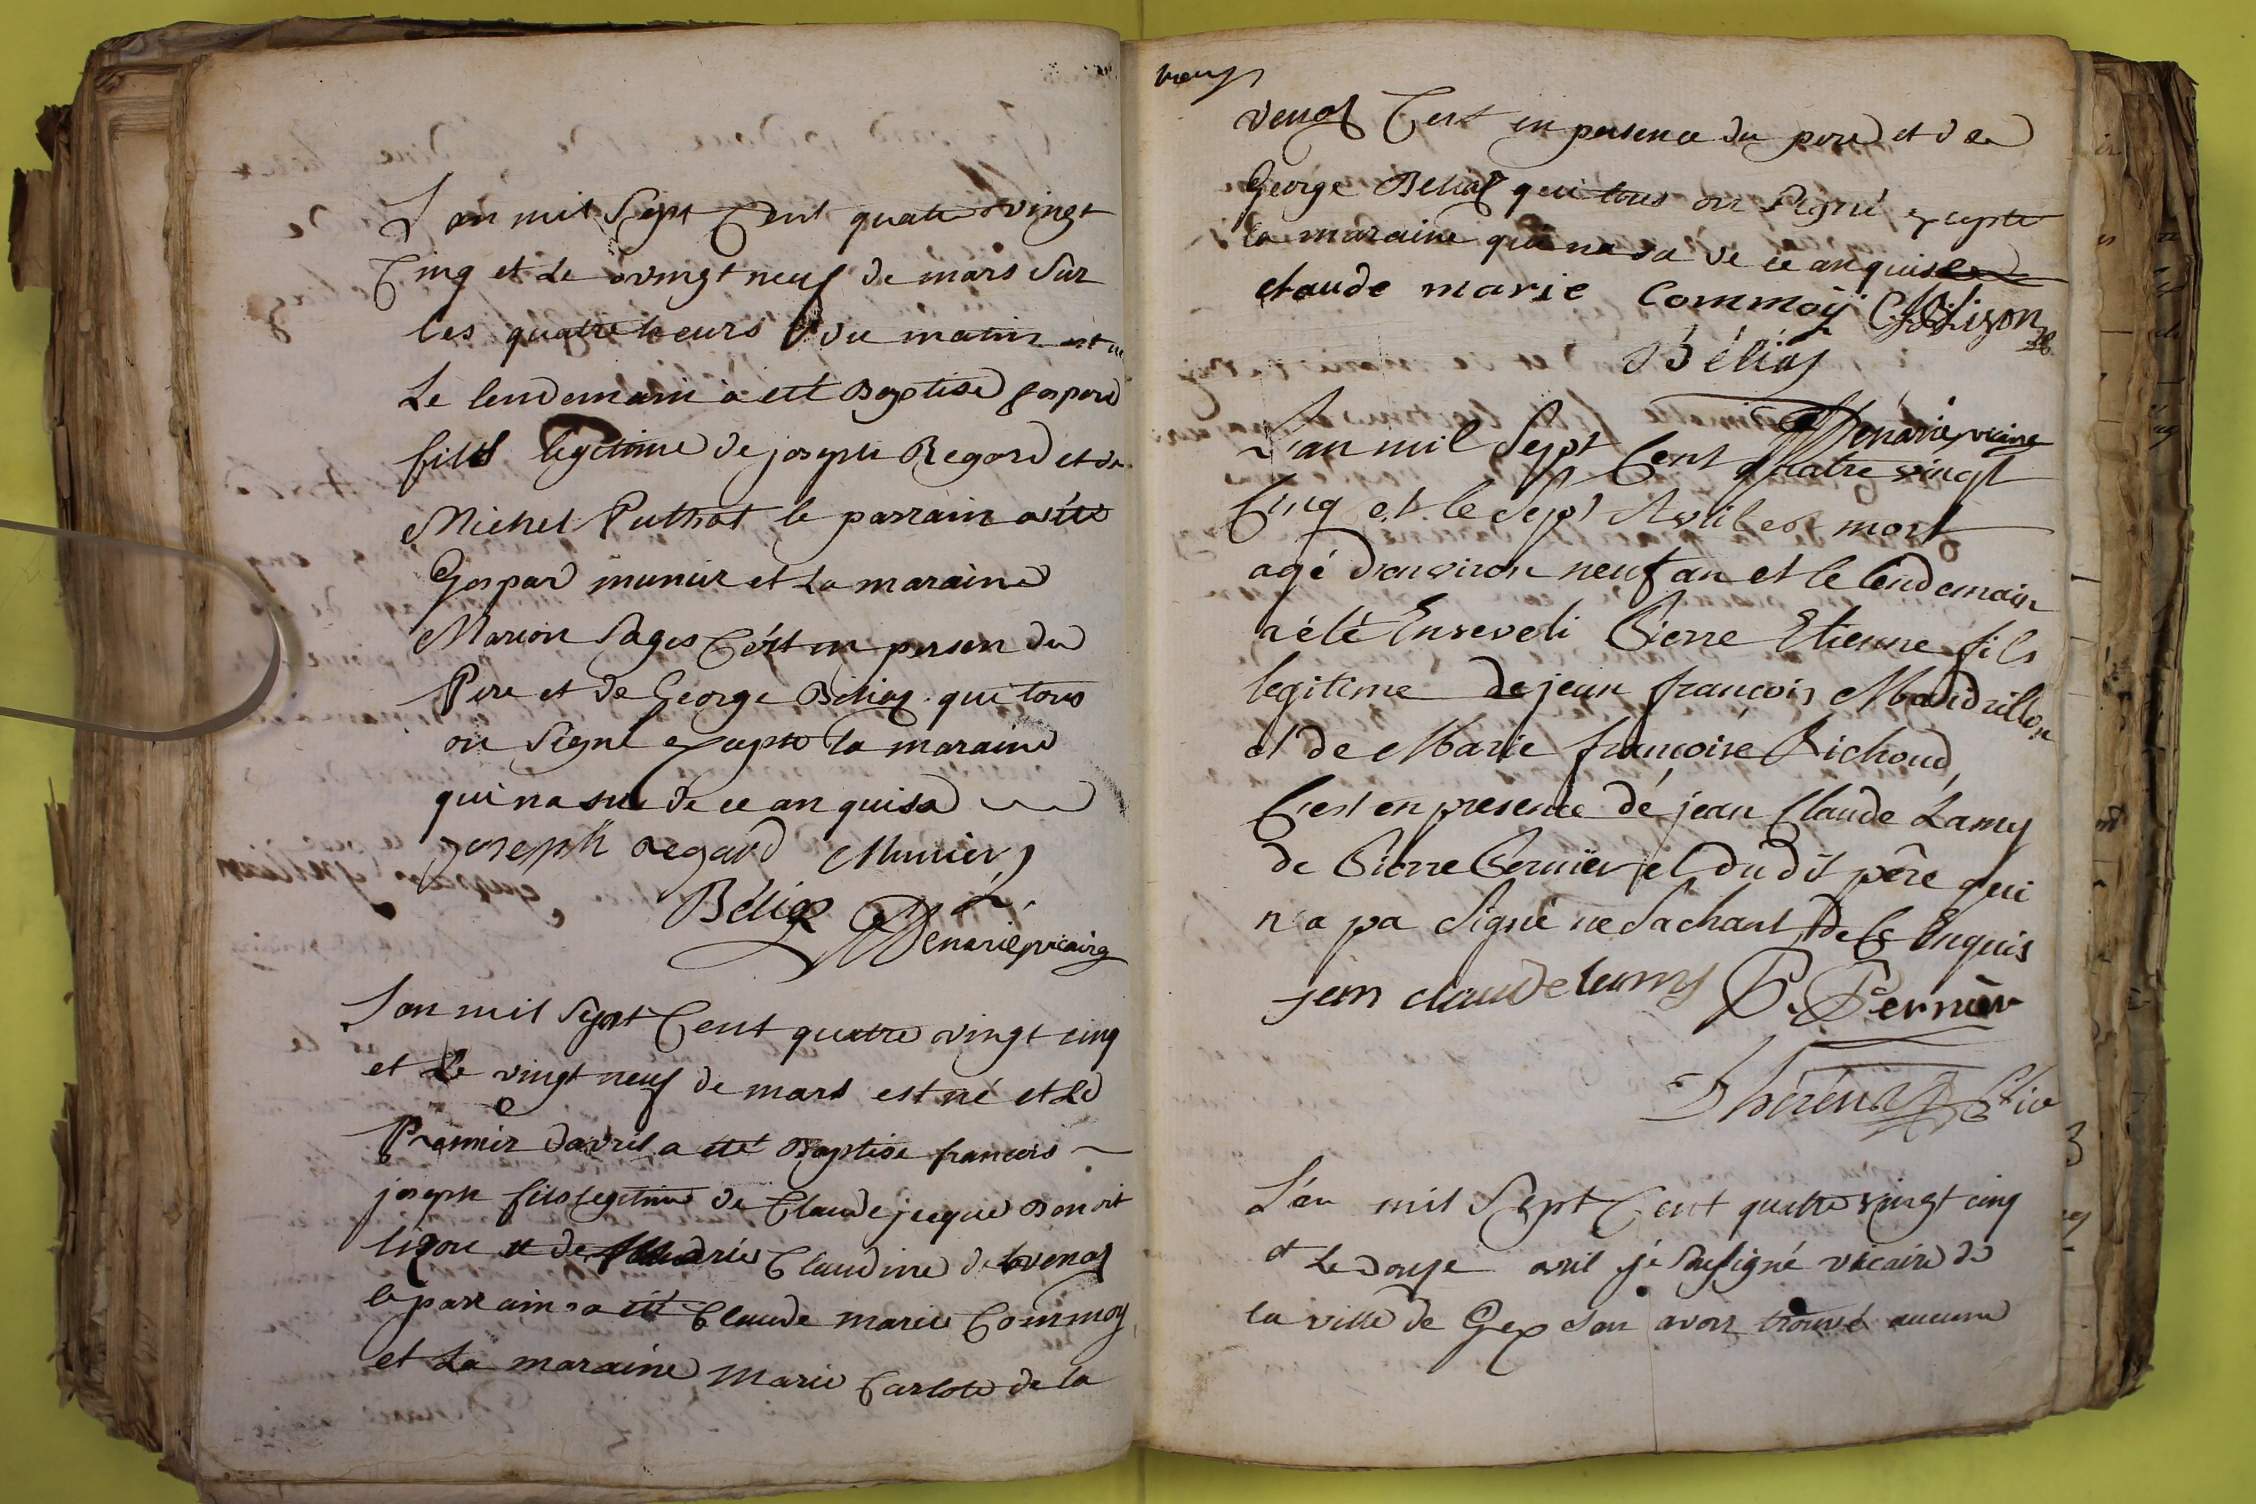 L'an mil Sept Cent quatre vingt
Cinq et Le vingt neuf de mars Sur
les quatre heurs du matin est né
Le lendemain a eté Baptisé gaspard
fils legitime de joseph Regard et de
Michel Puthod le parrain a été
Gaspar munier et la maraine
Marion Sages C'est en presen du
Pere et de George Béliaz qui tous
on Signé excepte la maraine
qui na su de ce an quise
joseph regard Munier
Béliaz Denarié vicaire
L'an mil Sept Cent quatre vingt cinq
et Le vingt neuf de mars est né et Le
Premier davril a eté Baptise francois
joseph fils legitime de Claude jacque Benoit
lizon et de Marie Claudine de
le parrain a eté Claude marie Commoy
et La maraine Marie Carlote de la
venaz C'est en presence du pere et de
George Beliaz qui tous on Signé excepte
la maraine qui na sa de ce anquise
claude marie Commoy Lizon
Béliaz
Denarié vicaire
L'an mil Sept Cent quatre vingt
Cinq et le Sept Avril est mort
agé d'environ neuf an et le lendemain
a été Enseveli Pierre Etienne fils
legitime de jean françois Mandrillon
et de Marie françoise Pichoud,
C'est en presence de jean Claude Lamy
de Pierre Pernier et du dit pêre qui
n'a pa Signé ne Sachant de Ce Enquis
jean claude lamy P. Pernier
Thérénaz Vic
L'an mil Sept Cent quattre vingt cinq
et Le douze avril je Sousigné vicaire de
la ville de Gex San avoir trouvé aucune